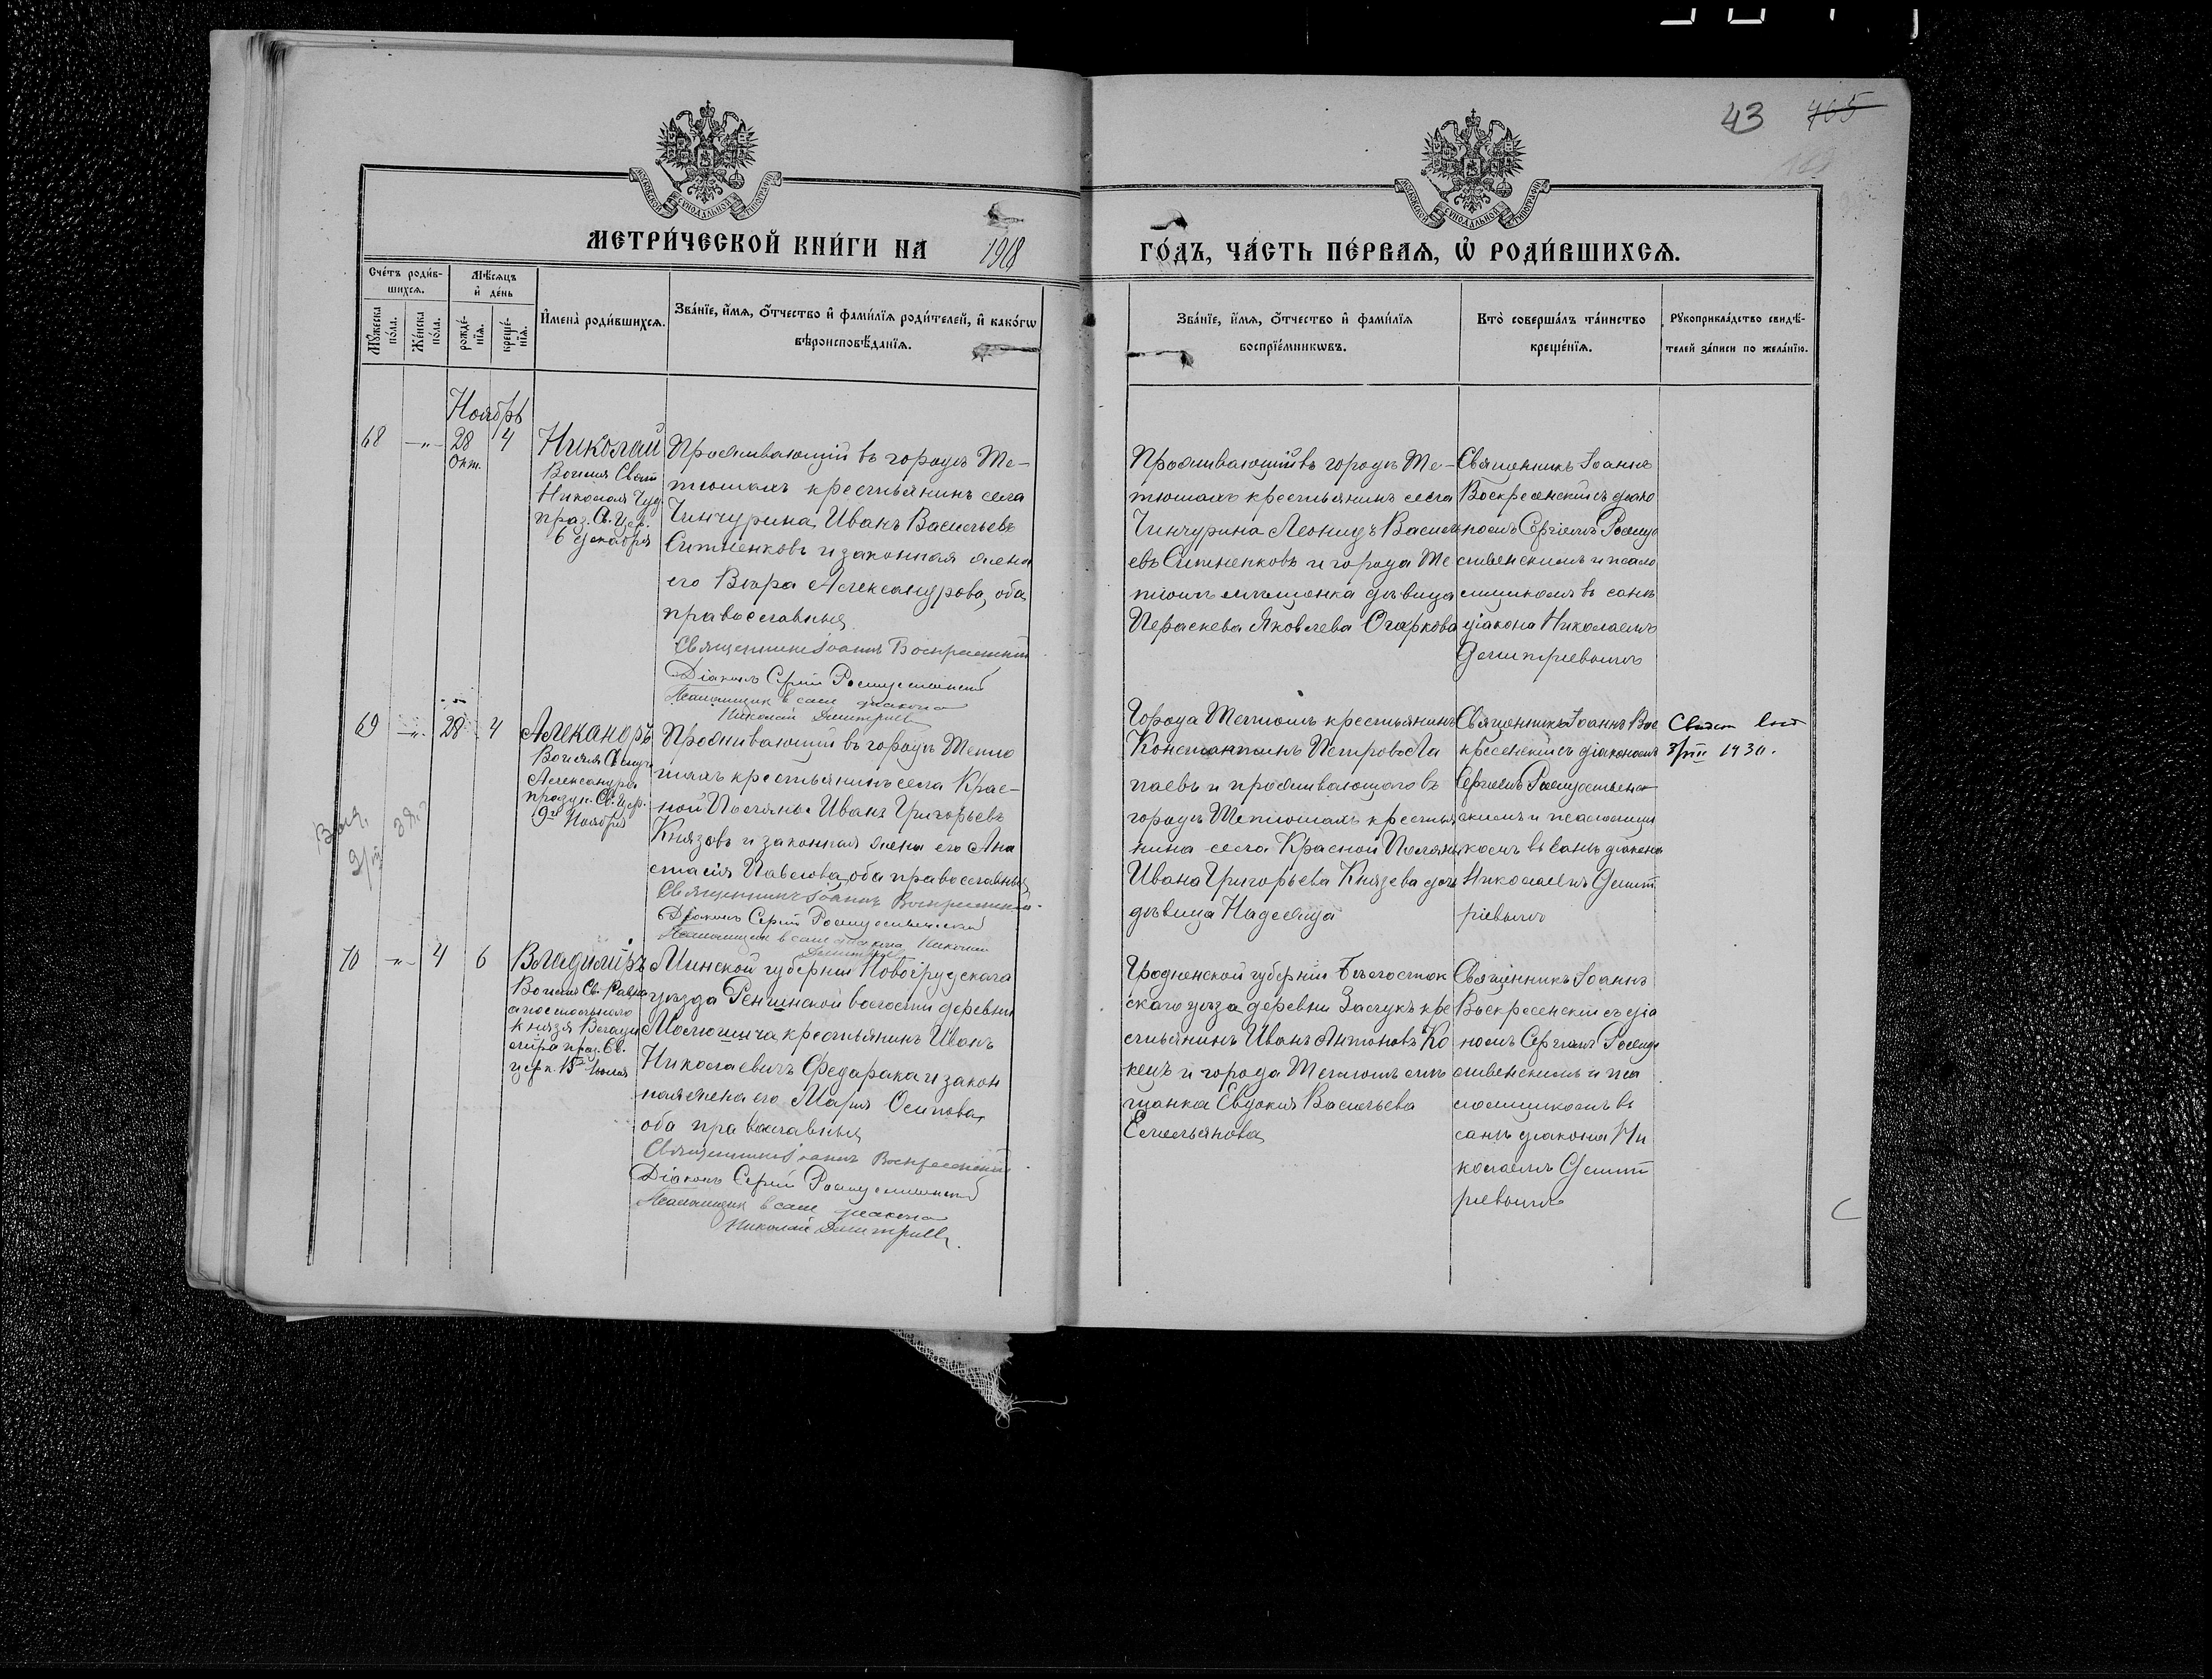 43 705
МОСКОВСКОЙ СѴНОДАЛЬНОЙ ТИПОГРАФІИ
МОСКОВСКОЙ СѴНОДАЛЬНОЙ ТИПОГРАФІИ
МЕТРИ́ЧЕСКОЙ КНИ́ГИ НА 1918
ГО́ДЪ, ЧА́СТЬ ПЕ́РВАЯ, Ѡ҆ РОДИ́ВШИХСЯ.
Сче́тъ роди́в-
шихся.
Мѣ́сяцъ
и҆ де́нь
Мꙋ́жеска
по́ла.
Же́нска
по́ла.
рожде́-
нїя.
креще́-
нїя.
И҆мена̀ роди́вшихся.
Зва́нїе, и҆́мя, ѻ҆́тчество и҆ фами́лїя роди́телей, и҆ како́гѡ
вѣроисповѣ́данїя.
Зва́нїе, и҆́мя, ѻ҆́тчество и҆ фами́лїя
воспрїе́мникѡвъ.
Кто̀ соверша́лъ та́инство
креще́нїя.
Рꙋкоприкла́дство свидѣ́-
телей за́писи по жела́нїю.
Ноябрь
68 —„— 28 4
Окт.
Николай
Во имя Свят
Николая Чуд
праз. Св. Цер.
6 декабря
Проживающій въ городѣ Те-
тюшахъ крестьянинъ села
Чинчурина Иванъ Васильевъ
Ситненковъ и законная жена
его Вѣра Александрова, оба
православные
Священникъ Іоаннъ Воскресенскій
Діаконъ Сергій Рождественскій
Псаломщик в сане диакона
Николай Дмитриев
Проживающій въ городѣ Те-
тюшахъ крестьянинъ села
Чинчурина Леонидъ Василь
евъ Ситненковъ и города Те
тюшъ мѣщанка дѣвица
Пераскева Яковлева Огаркова
Священникъ Іоаннъ
Воскресенскій съ діако
номъ Сергіемъ Рожде
ственскимъ и псало
мщикомъ въ санѣ
діакона Николаемъ
Дмитріевымъ
69 —„— 28 4
Алекандръ
Во имя
Александра
праздн. Св. Цер.
9го Ноября
Проживающій въ городѣ Тетю
шахъ крестьянинъ села Крас-
ной Поляны Иванъ Григорьевъ
Князевъ и законная жена его Ана
стасія Павлова, оба православные
Священникъ Іоаннъ Воскресенскій
Діаконъ Сергій Рождественскій
Псаломщик в сане диакона Николай
Дмитриев
Города Тетюшъ крестьянинъ
Константинъ Петровъ Ла
паевъ и проживающаго въ
городѣ Тетюшахъ крестья
нина села Красной Поляны
Ивана Григорьева Князева дочь
дѣвица Надежда
Священникъ Іоаннъ Вос
кресенскій съ діакономъ
Сергіемъ Рождественс
скимъ и псаломщи
комъ въ санѣ діакона
Николаемъ Дмит
ріевымъ
3/VIII 1930.
70 —„— 4 6
Владиміръ
Во имя Св. Равно
апостольнаго
Князя Влади
міра праз. Св.
церк. 15го Іюля
Минской губерніи Новогрудскаго
уѣзда волости деревни
крестьянинъ Иванъ
Николаевичъ Федарака и закон
ная жена его Марія Осипова,
оба православные
Священникъ Іоаннъ Воскресенскій
Діаконъ Сергій Рождественскій
Псаломщик в сане диакона
Николай Дмитриев.
Гродненской губерніи Бѣлосток
скаго уѣзда деревни Заслукъ кре
стьянинъ Иванъ Антоновъ Ко
кецъ и города Тетюшъ мѣ
щанка Евдокія Васильева
Емельянова
Священникъ Іоаннъ
Воскресенскій съ діа
кономъ Сергіемъ Рожде
ственскимъ и пса
ломщикомъ въ
санѣ діакона Ни
колаемъ Дмит
ріевымъ